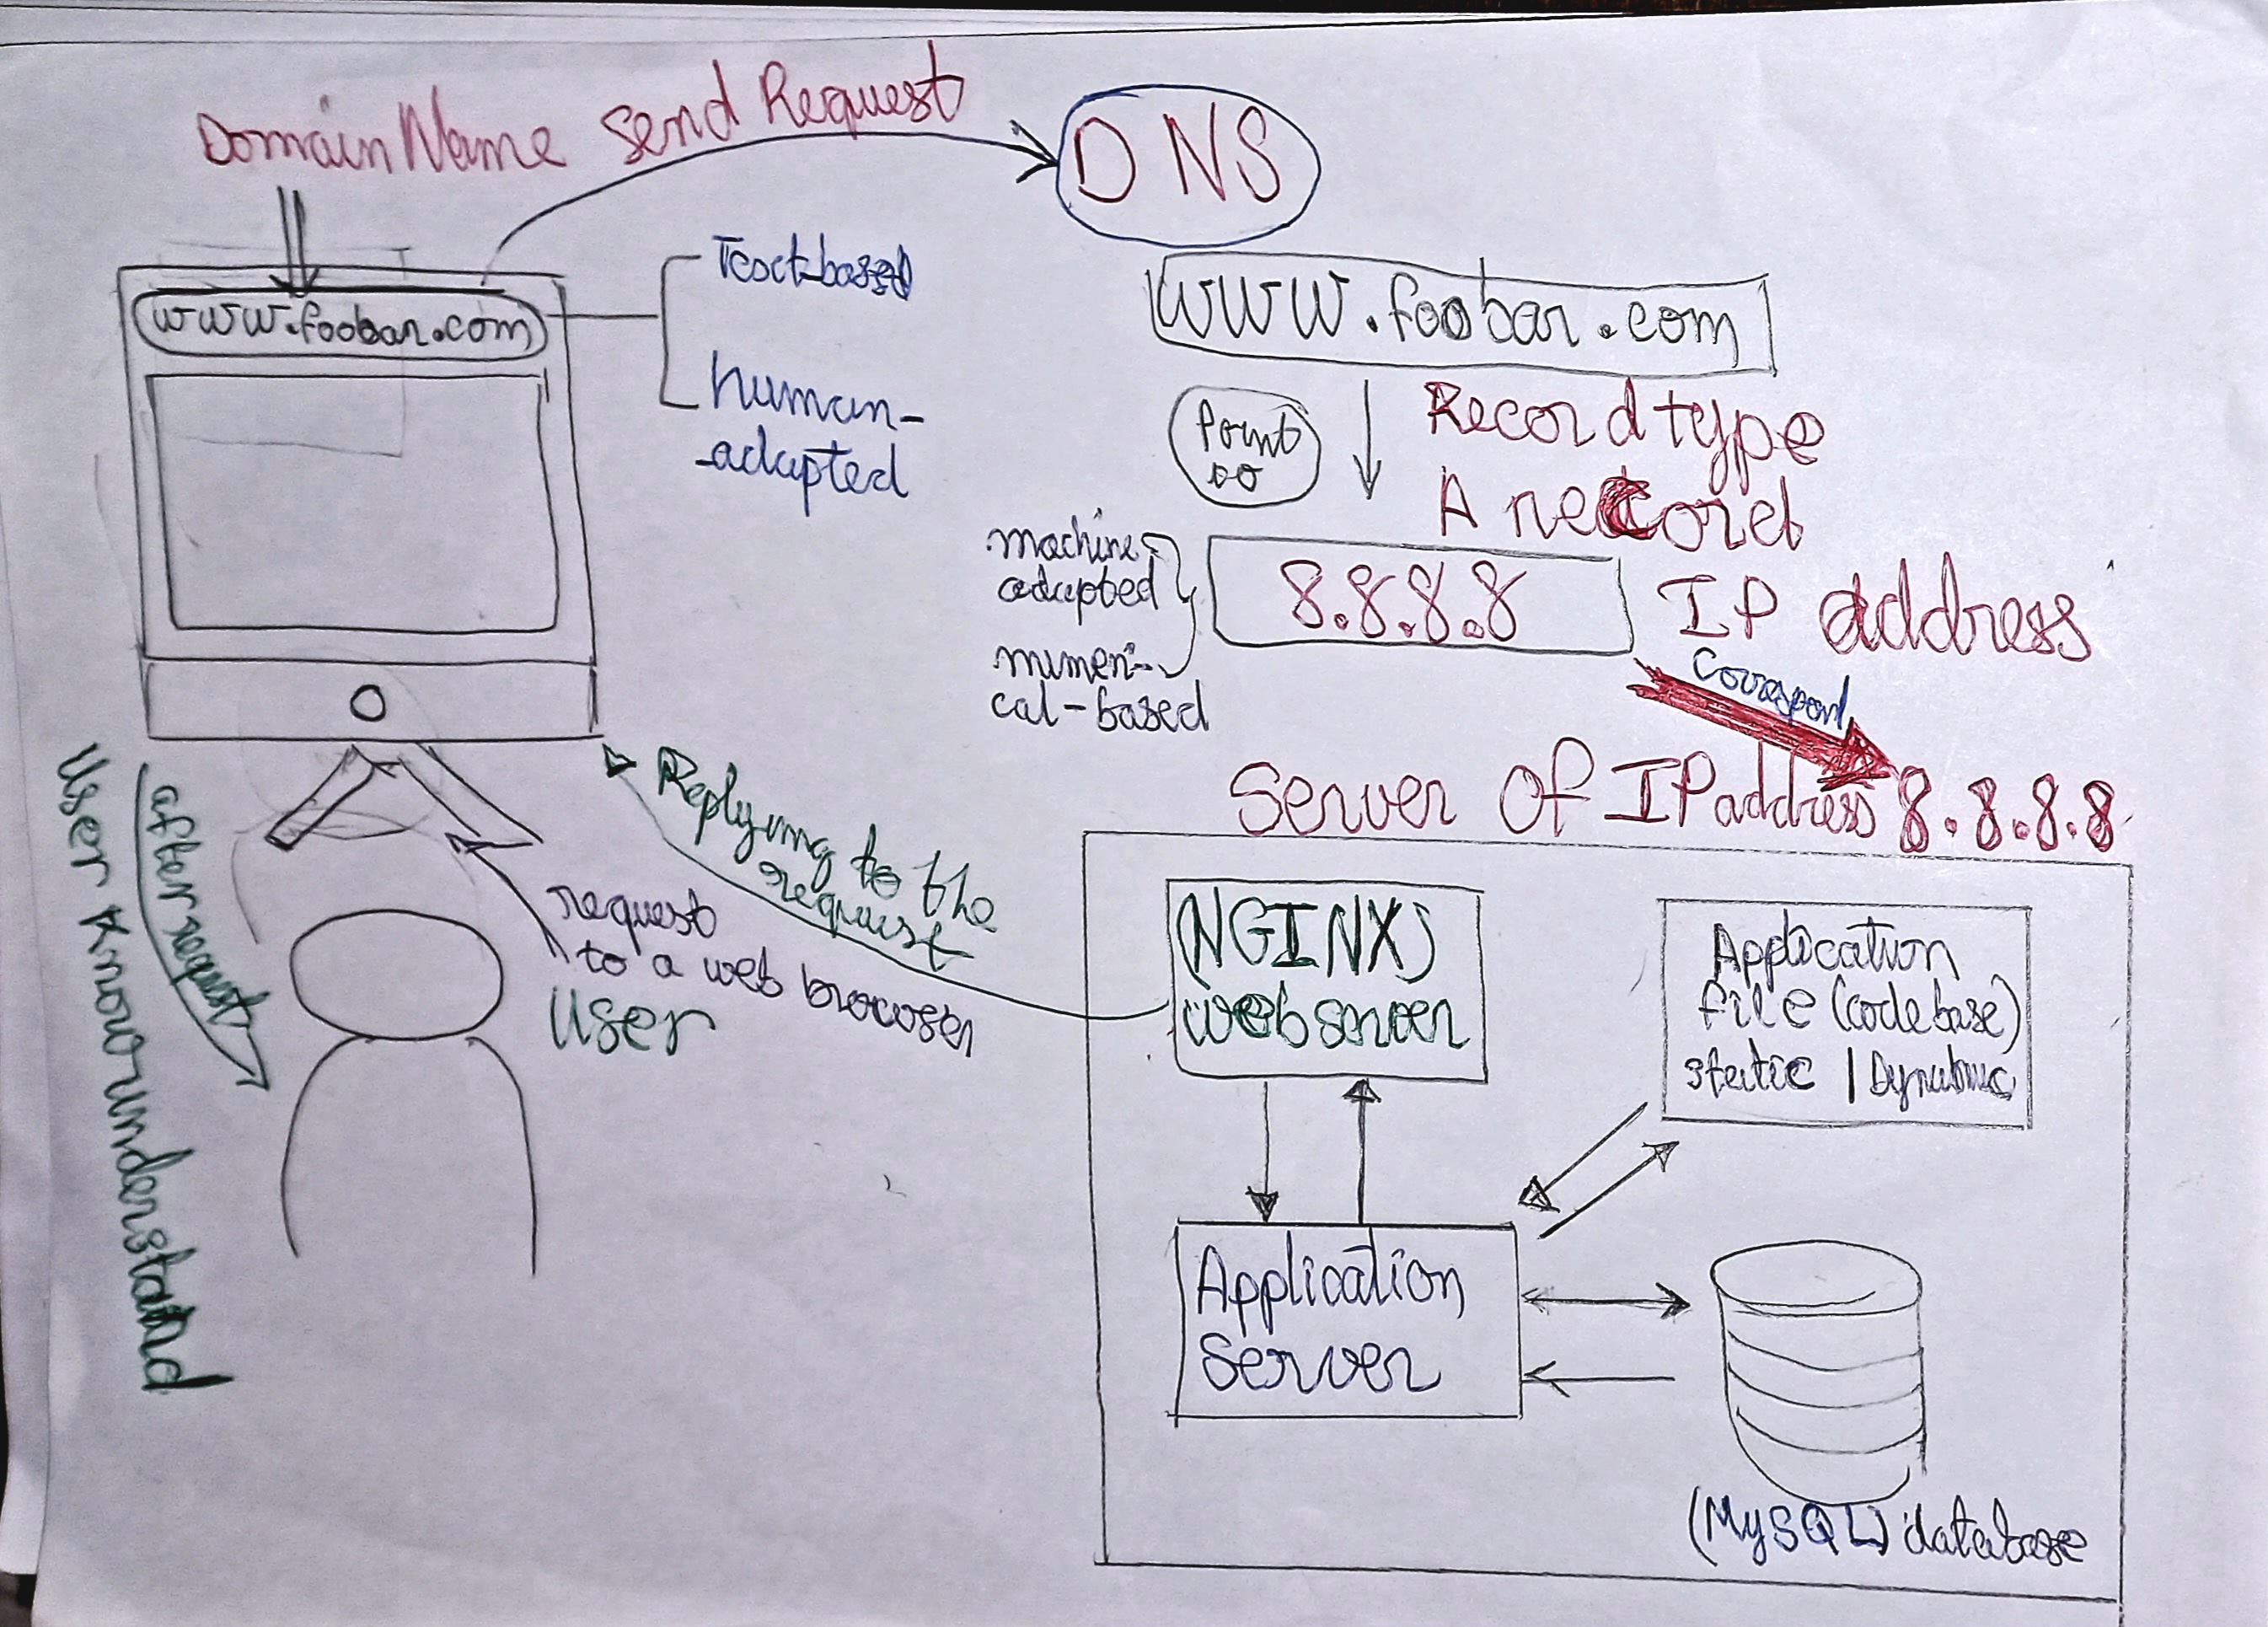 Domain Name Send Request
DNS
www.foobar.com
Text-based
human-
-adapted
www.foobar.com
Point
to
Record type
A record
machine
adapted
numeri-
cal-based
8.8.8.8
IP address
Correspond
Server Of IP address 8.8.8.8
Replying to the
request
request
to a web browser
User
after request
User Know understand
(NGINX)
web server
Application
file (codebase)
static | Dynamic
Application
Server
(MySQL) database